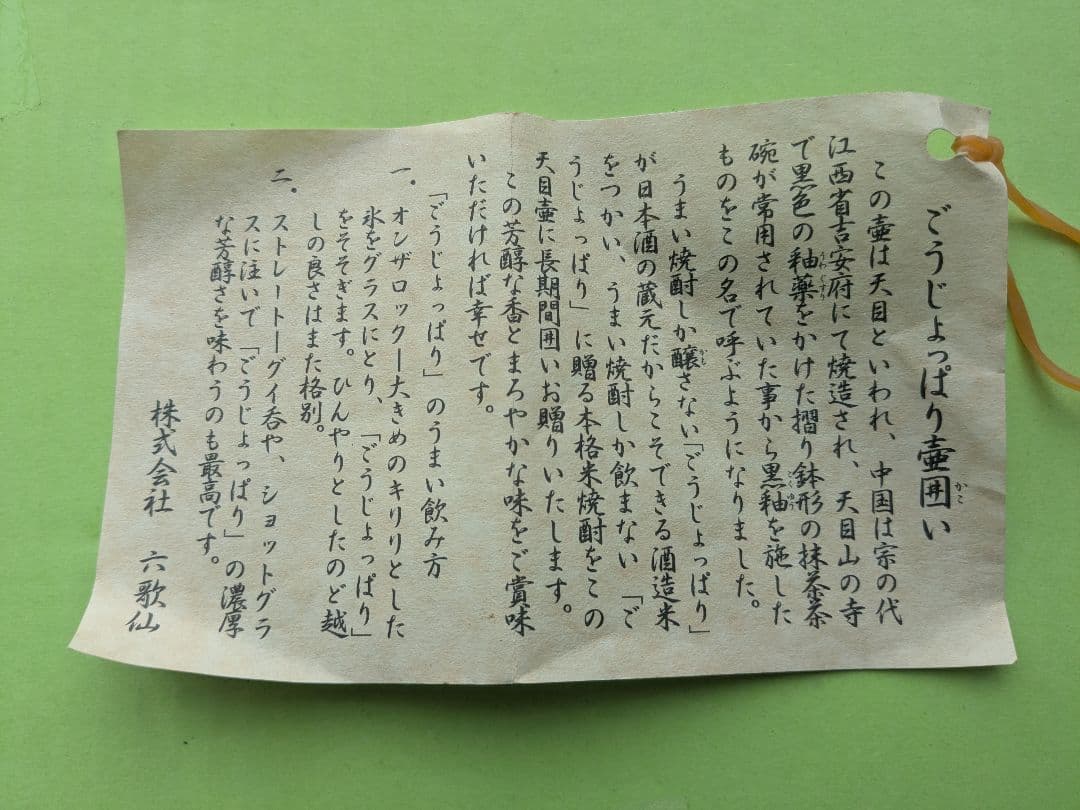 ごうじょっぱり壷囲い
この壷は天目といわれ、中国は宗の代
江西省吉安府にて焼造され、天目山の寺
で黒色の釉薬をかけた摺り鉢形の抹茶茶
碗が常用されていた事から黒釉を施した
ものをこの名で呼ぶようになりました。
うまい焼酎しか醸さない「ごうじょっぱり」
が日本酒の蔵元だからこそできる酒造米
をつかい、うまい焼酎しか飲まない「ご
うじょっぱり」に贈る本格米焼酎をこの
天目壷に長期間囲いお贈りいたします。
この芳醇な香とまろやかな味をご賞味
いただければ幸せです。
「ごうじょっぱり」のうまい飲み方
一．オンザロックー大きめのキリリとした
氷をグラスにとり、「ごうじょっぱり」
をそそぎます。ひんやりとしたのど越
しの良さはまた格別。
二．ストレートーグイ呑や、ショットグラ
スに注いで「ごうじょっぱり」の濃厚
な芳醇さを味わうのも最高です。
株式会社 六歌仙